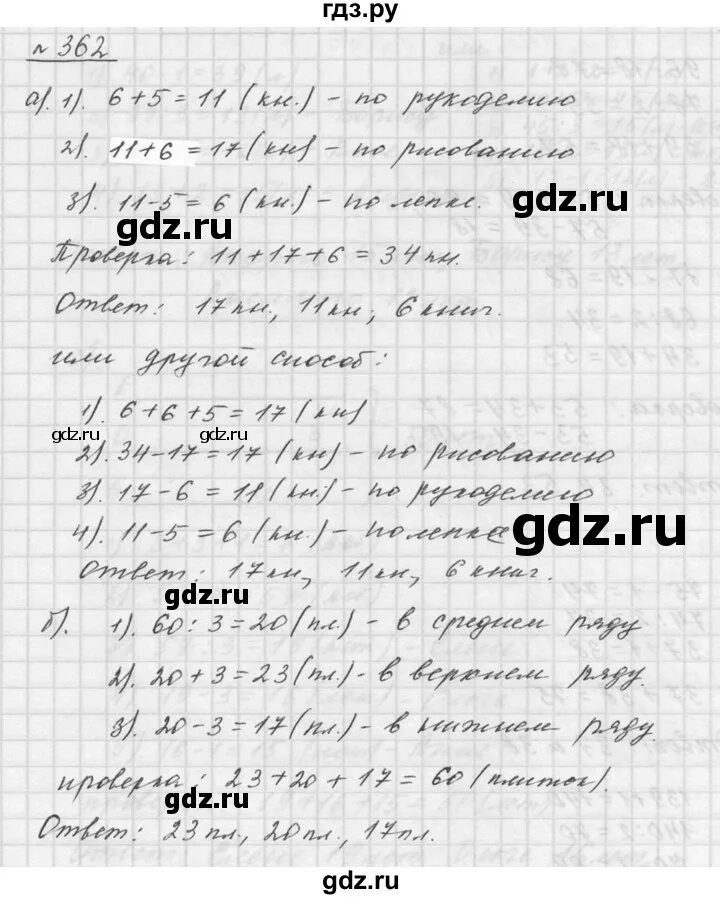 гдз.ру
№ 362
а). 1). 6+5=11 (кн.) - по рукоделию
2). 11+6=17 (кн) - по рисованию
3). 11-5=6 (кн.) - по лепке.
gdz.ru gdz.ru
Проверка: 11+17+6=34 кн.
Ответ: 17 кн, 11 кн, 6 книг.
или другой способ:
1). 6+6+5=17 (кн)
gdz.ru gdz.ru
2). 34-17=17 (кн) - по рисованию
3). 17-6=11 (кн.) - по рукоделию
4). 11-5=6 (кн) - по лепке
gdz.ru
Ответ: 17 кн, 11 кн, 6 книг.
gdz.ru
б). 1). 60:3=20 (пл.) - в среднем ряду
2). 20+3=23 (пл.) - в верхнем ряду.
gdz.ru
3). 20-3=17 (пл.) - в нижнем ряду
проверка: 23+20+17=60 (плиток).
gdz.ru
Ответ: 23 пл., 20 пл., 17 пл.
gdz.ru